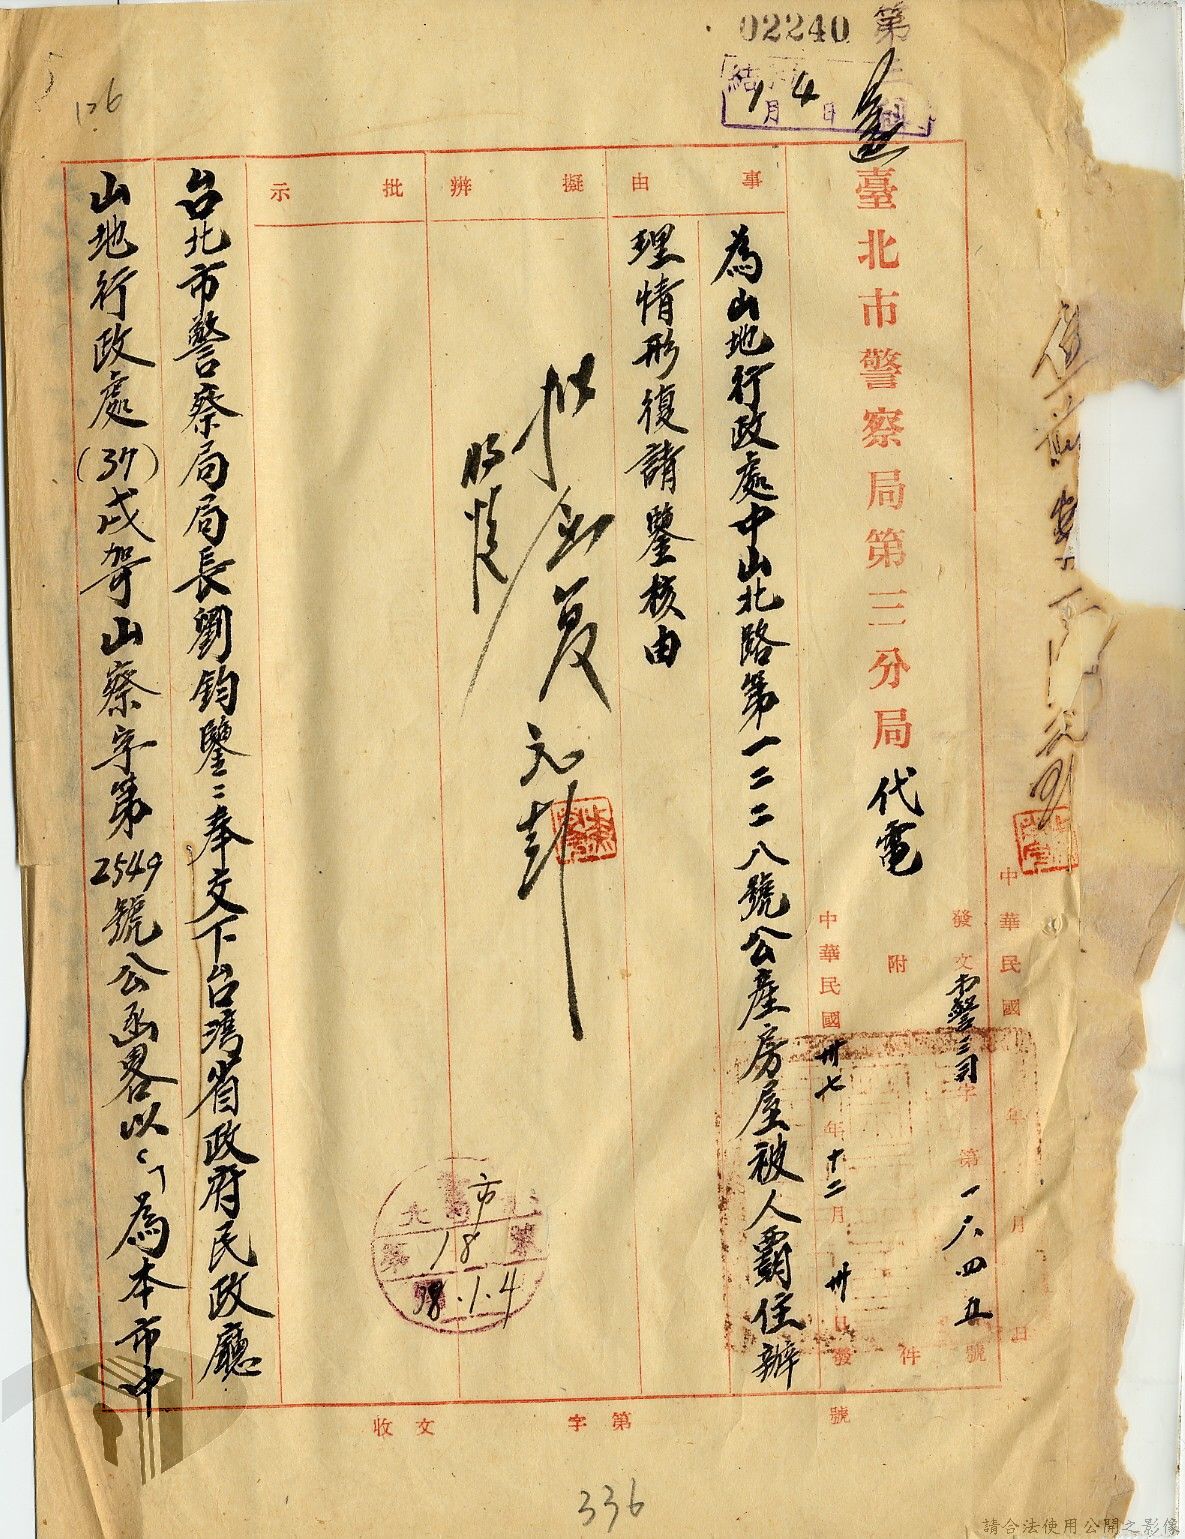 02240 第
1月4日
臺北市警察局第三分局代電
中華民國 年 月 日
發文市警三司字第一八四五號
附 件
中華民國卅七年十二月卅日發
事由
為山地行政處中山北路第一二二八號公產房屋被人霸住辦
理情形復請鑒核由
擬辦
批示
台北市警察局局長劉鈞鑒：奉交下台灣省政府民政廳
山地行政處(37)戌哿山察字第2549號公函畧以「為本市中
市
18
38.1.4
收文 字第 號
126
336
請合法使用公開之影像